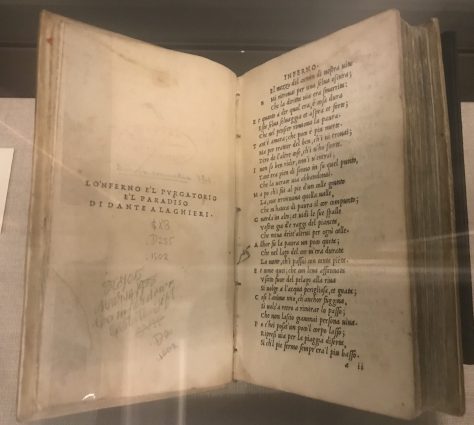 LO'NFERNO E'L PVRGATORIO
E'L PARADISO
DI DANTE ALAGHIERI.
$X8
D235
1502
INFERNO.
N el mezzo del camin di nostra uita
Mi ritrouai per una selua oscura;
Che la diritta uia era smarrita:
E t quanto a dir qual era, è cosa dura
Esta selua seluaggia et aspra et forte;
Che nel pensier rinnoua la paura.
T ant'è amara; che poco è piu morte.
Ma per trattar del ben, ch'i ui trouai;
Diro de l'altre cose, ch'i u'ho scorte.
I non so ben ridir, com'i u'entrai;
Tant'era pien di sonno in su quel punto,
Che la uerace uia abbandonai.
M a po ch'i fui al pie d'un colle giunto
La, oue terminaua quella ualle,
Che m'hauea di paura il cor compunto;
G uardai in alto; et uidi le sue spalle
Vestite gia de raggi del pianeta,
Che mena dritt'altrui per ogni calle.
A llhor fu la paura un poco queta;
Che nel lago del cor m'era durata
La notte, ch'i passai con tanta pieta.
E t come quei; che con lena affannata
Vscito fuor del pelago alla riua
Si uolge a l'acqua perigliosa, et guata;
C osi l'animo mio, ch'anchor fuggiua,
Si uols'a retro a rimirar lo passo;
Che non lascio giamai persona uiua.
P o c'hei posat'un poco'l corpo lasso;
Ripresi uia per la piaggia diserta,
Si ch'l pie fermo sempr'era'l piu basso.
a ii